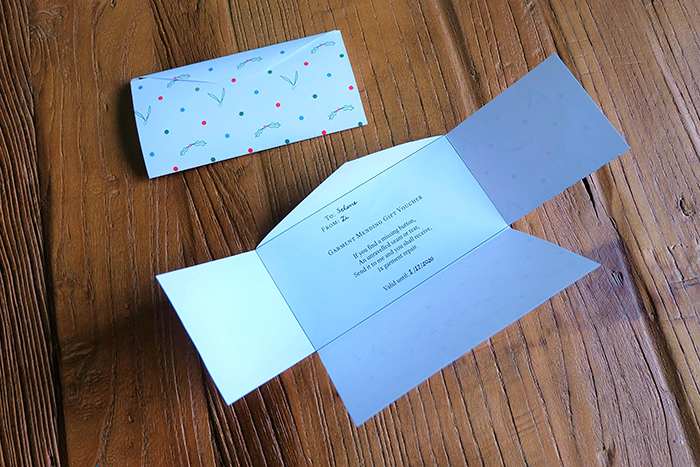 To: Selene
From: Zi
Garment Mending Gift Voucher
If you find a missing button,
An unravelled seam or tear,
Send it to me and you shall receive,
1x garment repair.
Valid until: 1/12/2020